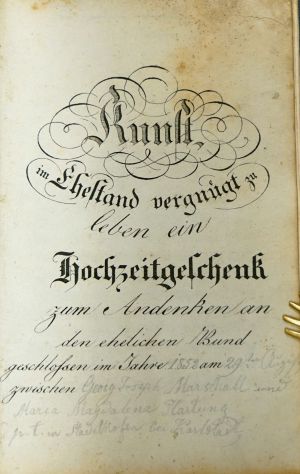 Kunst,
im Ehestand vergnügt zu
leben ein
Hochzeitgeschenk
zum Andenken an
den ehelichen Bund
geschlossen im Jahre 1852 am 29ten
zwischen Georg Joseph Marshall und
Maria Magdalena Hartung
in bei Karlstadt